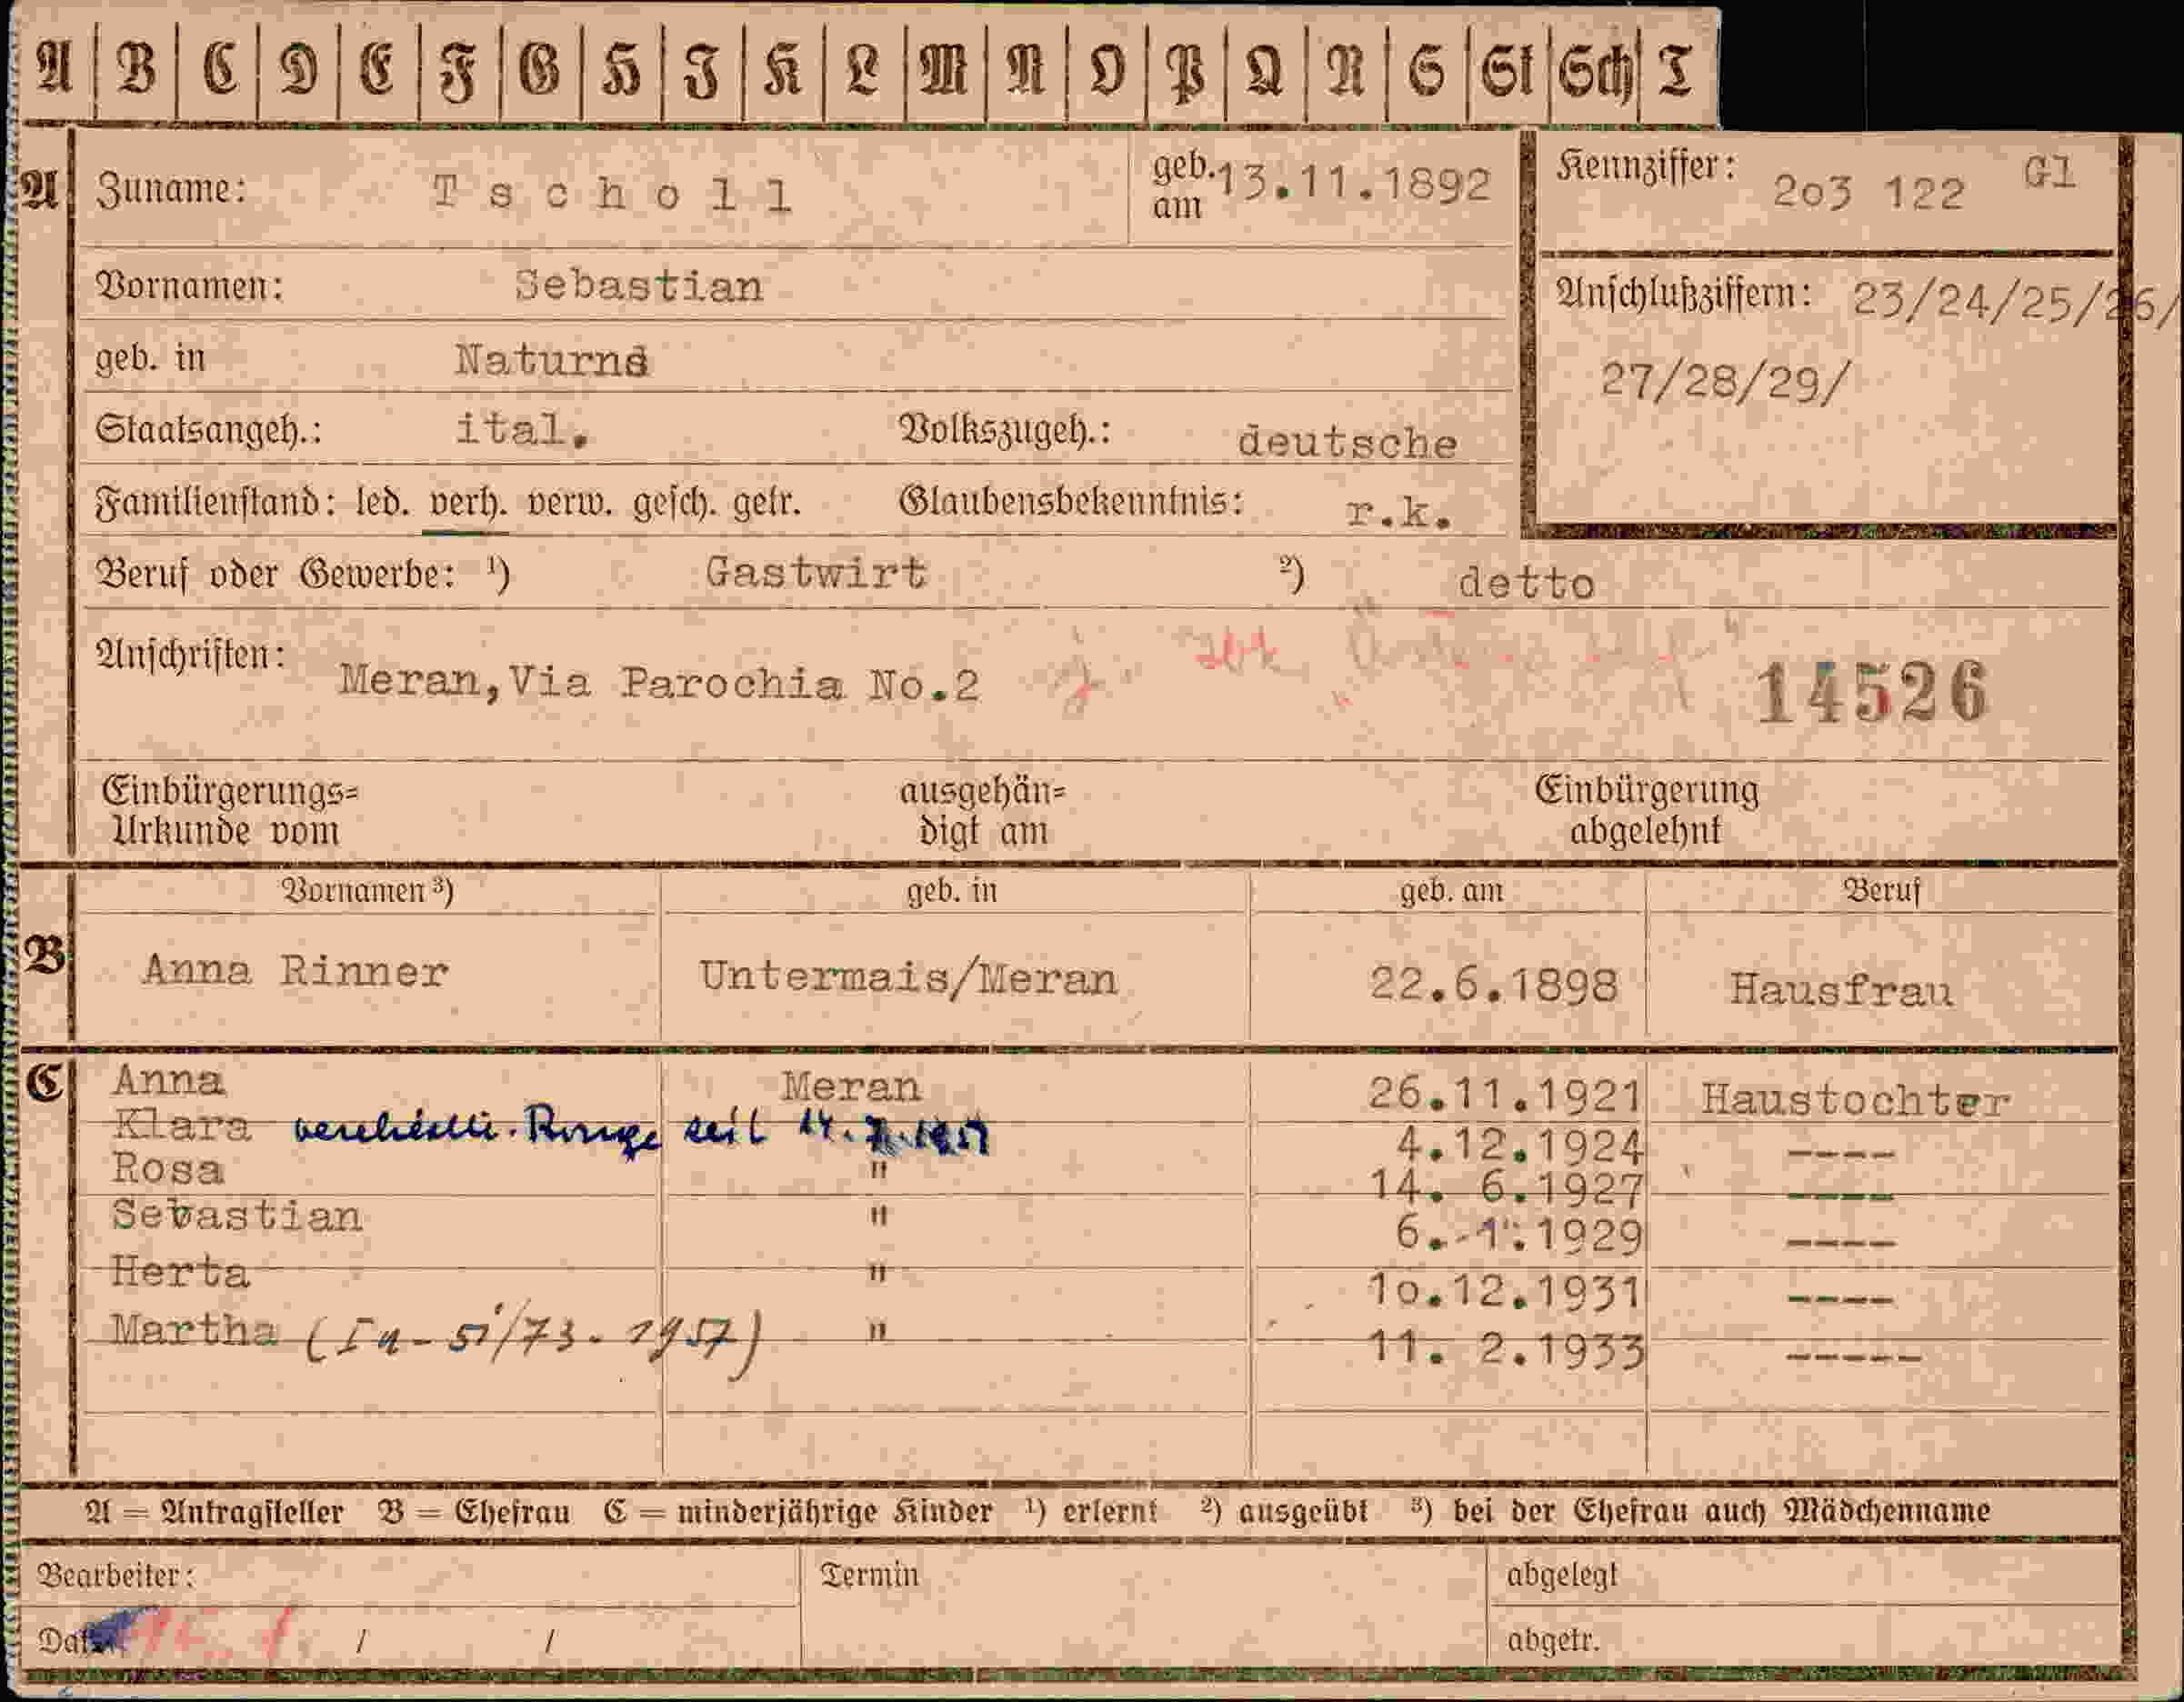 A B C D E F G H J K L M N O P Q R S St Sch T
A Zuname: Tscholl geb. am 13.11.1892 Kennziffer: 2o3 122 Gl
Vornamen: Sebastian Anschlußziffern: 23/24/25/26/
geb. in Naturns 27/28/29/
Staatsangeh.: ital. Volkszugeh.: deutsche
Familienstand: led. verh. verw. gesch. getr. Glaubensbekenntnis: r.k.
Beruf oder Gewerbe: ¹) Gastwirt ²) detto
Anschriften: Meran,Via Parochia No.2 14526
Einbürgerungs= ausgehän= Einbürgerung
Urkunde vom digt am abgelehnt
Vornamen ³) geb. in geb. am Beruf
B Anna Rinner Untermais/Meran 22.6.1898 Hausfrau
C Anna Meran 26.11.1921 Haustochter
Klara seit 4.12.1924 ----
Rosa " 14. 6.1927 ----
Sebastian " 6. 1.1929 ----
Herta " 1o.12.1931 ----
Martha " 11. 2.1933 -----
A = Antragsteller B = Ehefrau C = minderjährige Kinder ¹) erlernt ²) ausgeübt ³) bei der Ehefrau auch Mädchenname
Bearbeiter: Termin abgelegt
/ / abgetr.